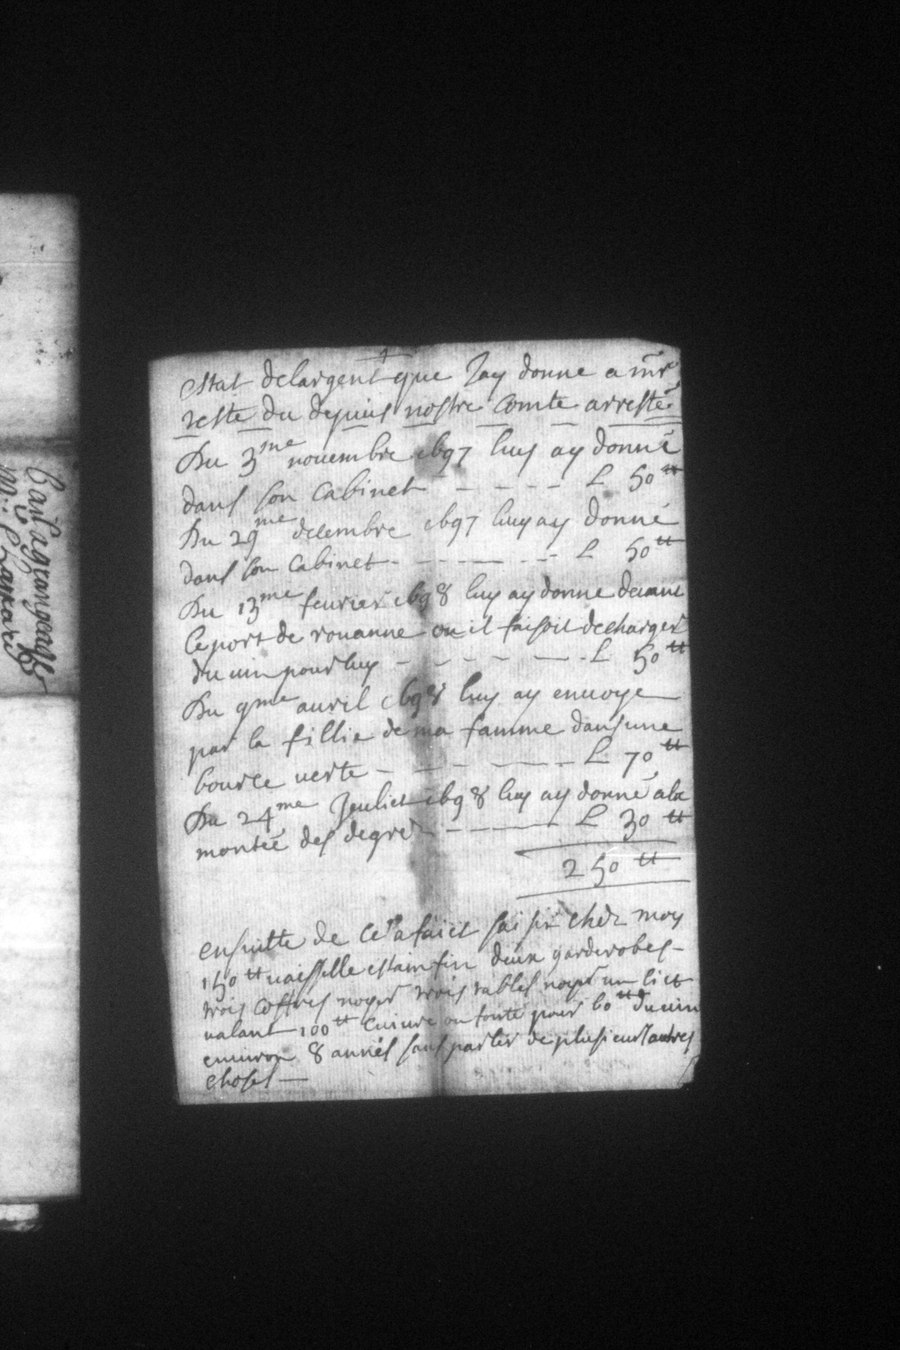 estat delargent que Jay donne a mr
reste du depuis nostre comte arresté
Du 3me nouembre 1697 luy ay donné
dans son Cabinet - - - - - L 50 tt
Du 29me decembre 1697 luy ay donné
dans son Cabinet - - - - - L 50 tt
Du 13me feurier 1698 luy ay donne deuant
le port de rouanne ou il faisoit decharger
du uin pour luy - - - - - L 50 tt
Du 9me auril 1698 luy ay enuoye
par la fillie de ma famme dans une
bource uerte - - - - - L 70 tt
Du 24me Jeuliet 1698 luy ay donné ala
montée des degrez - - - - - L 30 tt
250 tt
ensuitte de ce a faict saisir chez moy
150 tt uaisselle estain fin deux garderobes
trois coffres noyer trois tables noyer un lict
ualant 100 tt Cuiure ou fonte pour 60 tt du uin
enuiron 8 annés sans parler de plusieurs autres
choses